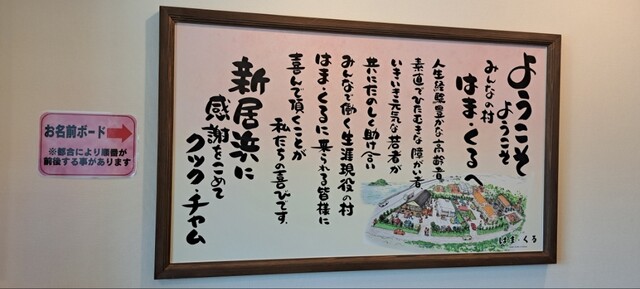 ようこそ
ようこそ
みんなの村
はま・くるへ
人生経験豊かな高齢者
素直でひたむきな障がい者
いきいき元気な若者が
共にたのしく助け合い
みんなで働く生涯現役の村
はま・くるに来られる皆様に
喜んで頂くことが
私たちの喜びです
新居浜に
感謝をこめて
クック・チャム
はま・くる
お名前ボード
※都合により順番が
前後する事があります